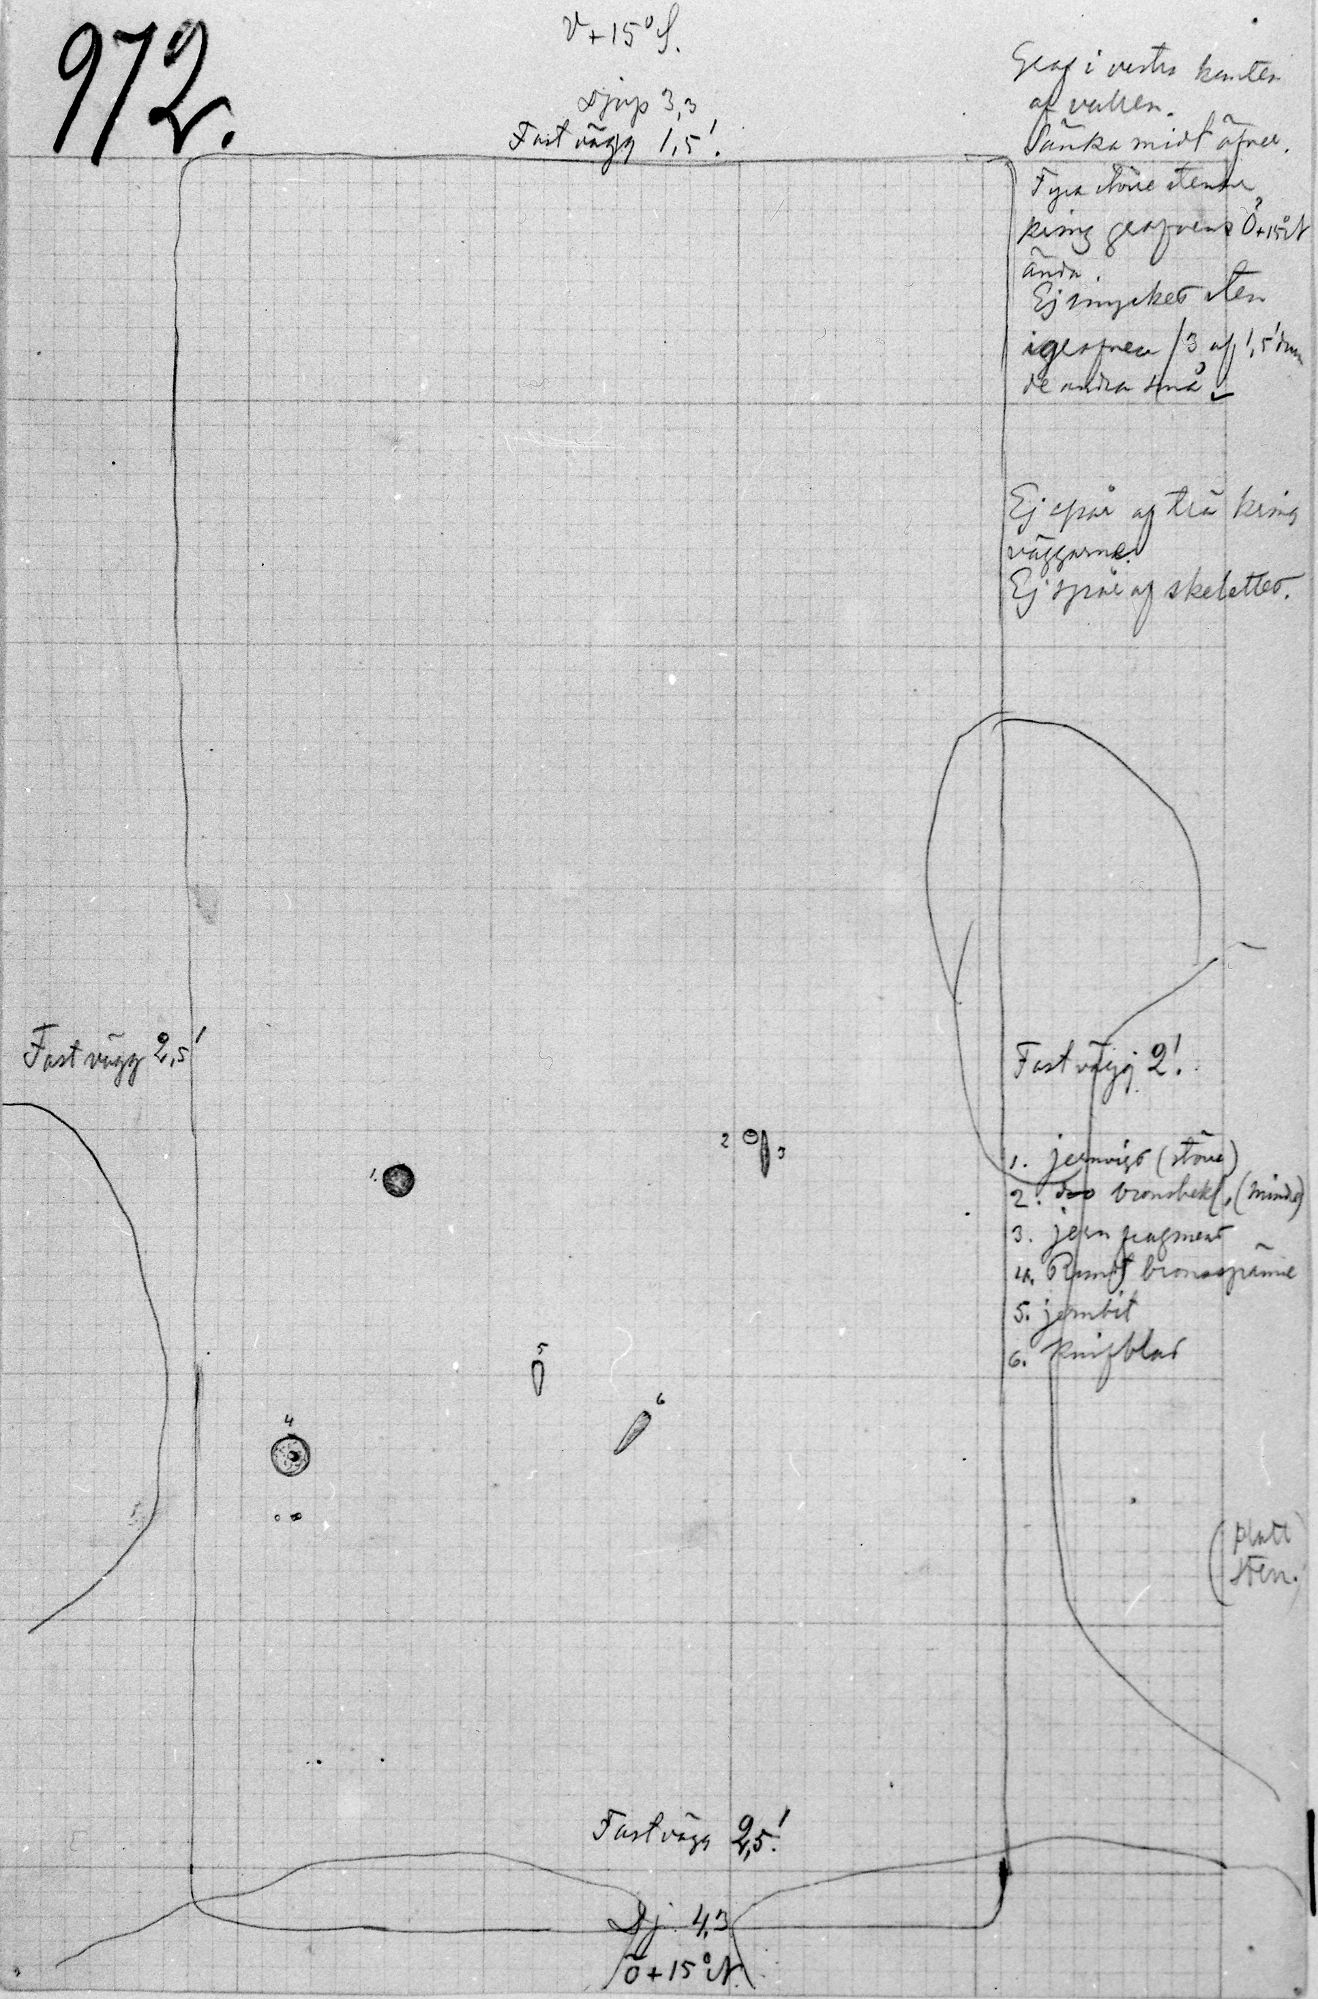 972.
V+15°S.
Djup 3,3
Fast vägg 1,5'.
Graf i vestra kanten
af vallen.
Sänka midt öfver.
Fyra större stenar
kring grafvens Ö+15°N
ända.
Ej mycket sten
i grafven (3 af 1,5' diam
de andra små
Ej spår af trä kring
väggarne.
Ej spår af skelettet.
Fast vägg 2,5'
Fast vägg 2'.
1. jernvigt (större)
2. do bronsbekl. (mindre)
3. jern fragment
4. Rundt bronsspänne
5. jernbit
6. knifblad
1.
2
3
5
6
4
(platt
sten.)
Fast vägg 2,5'.
Dj. 4,3
Ö+15°N.